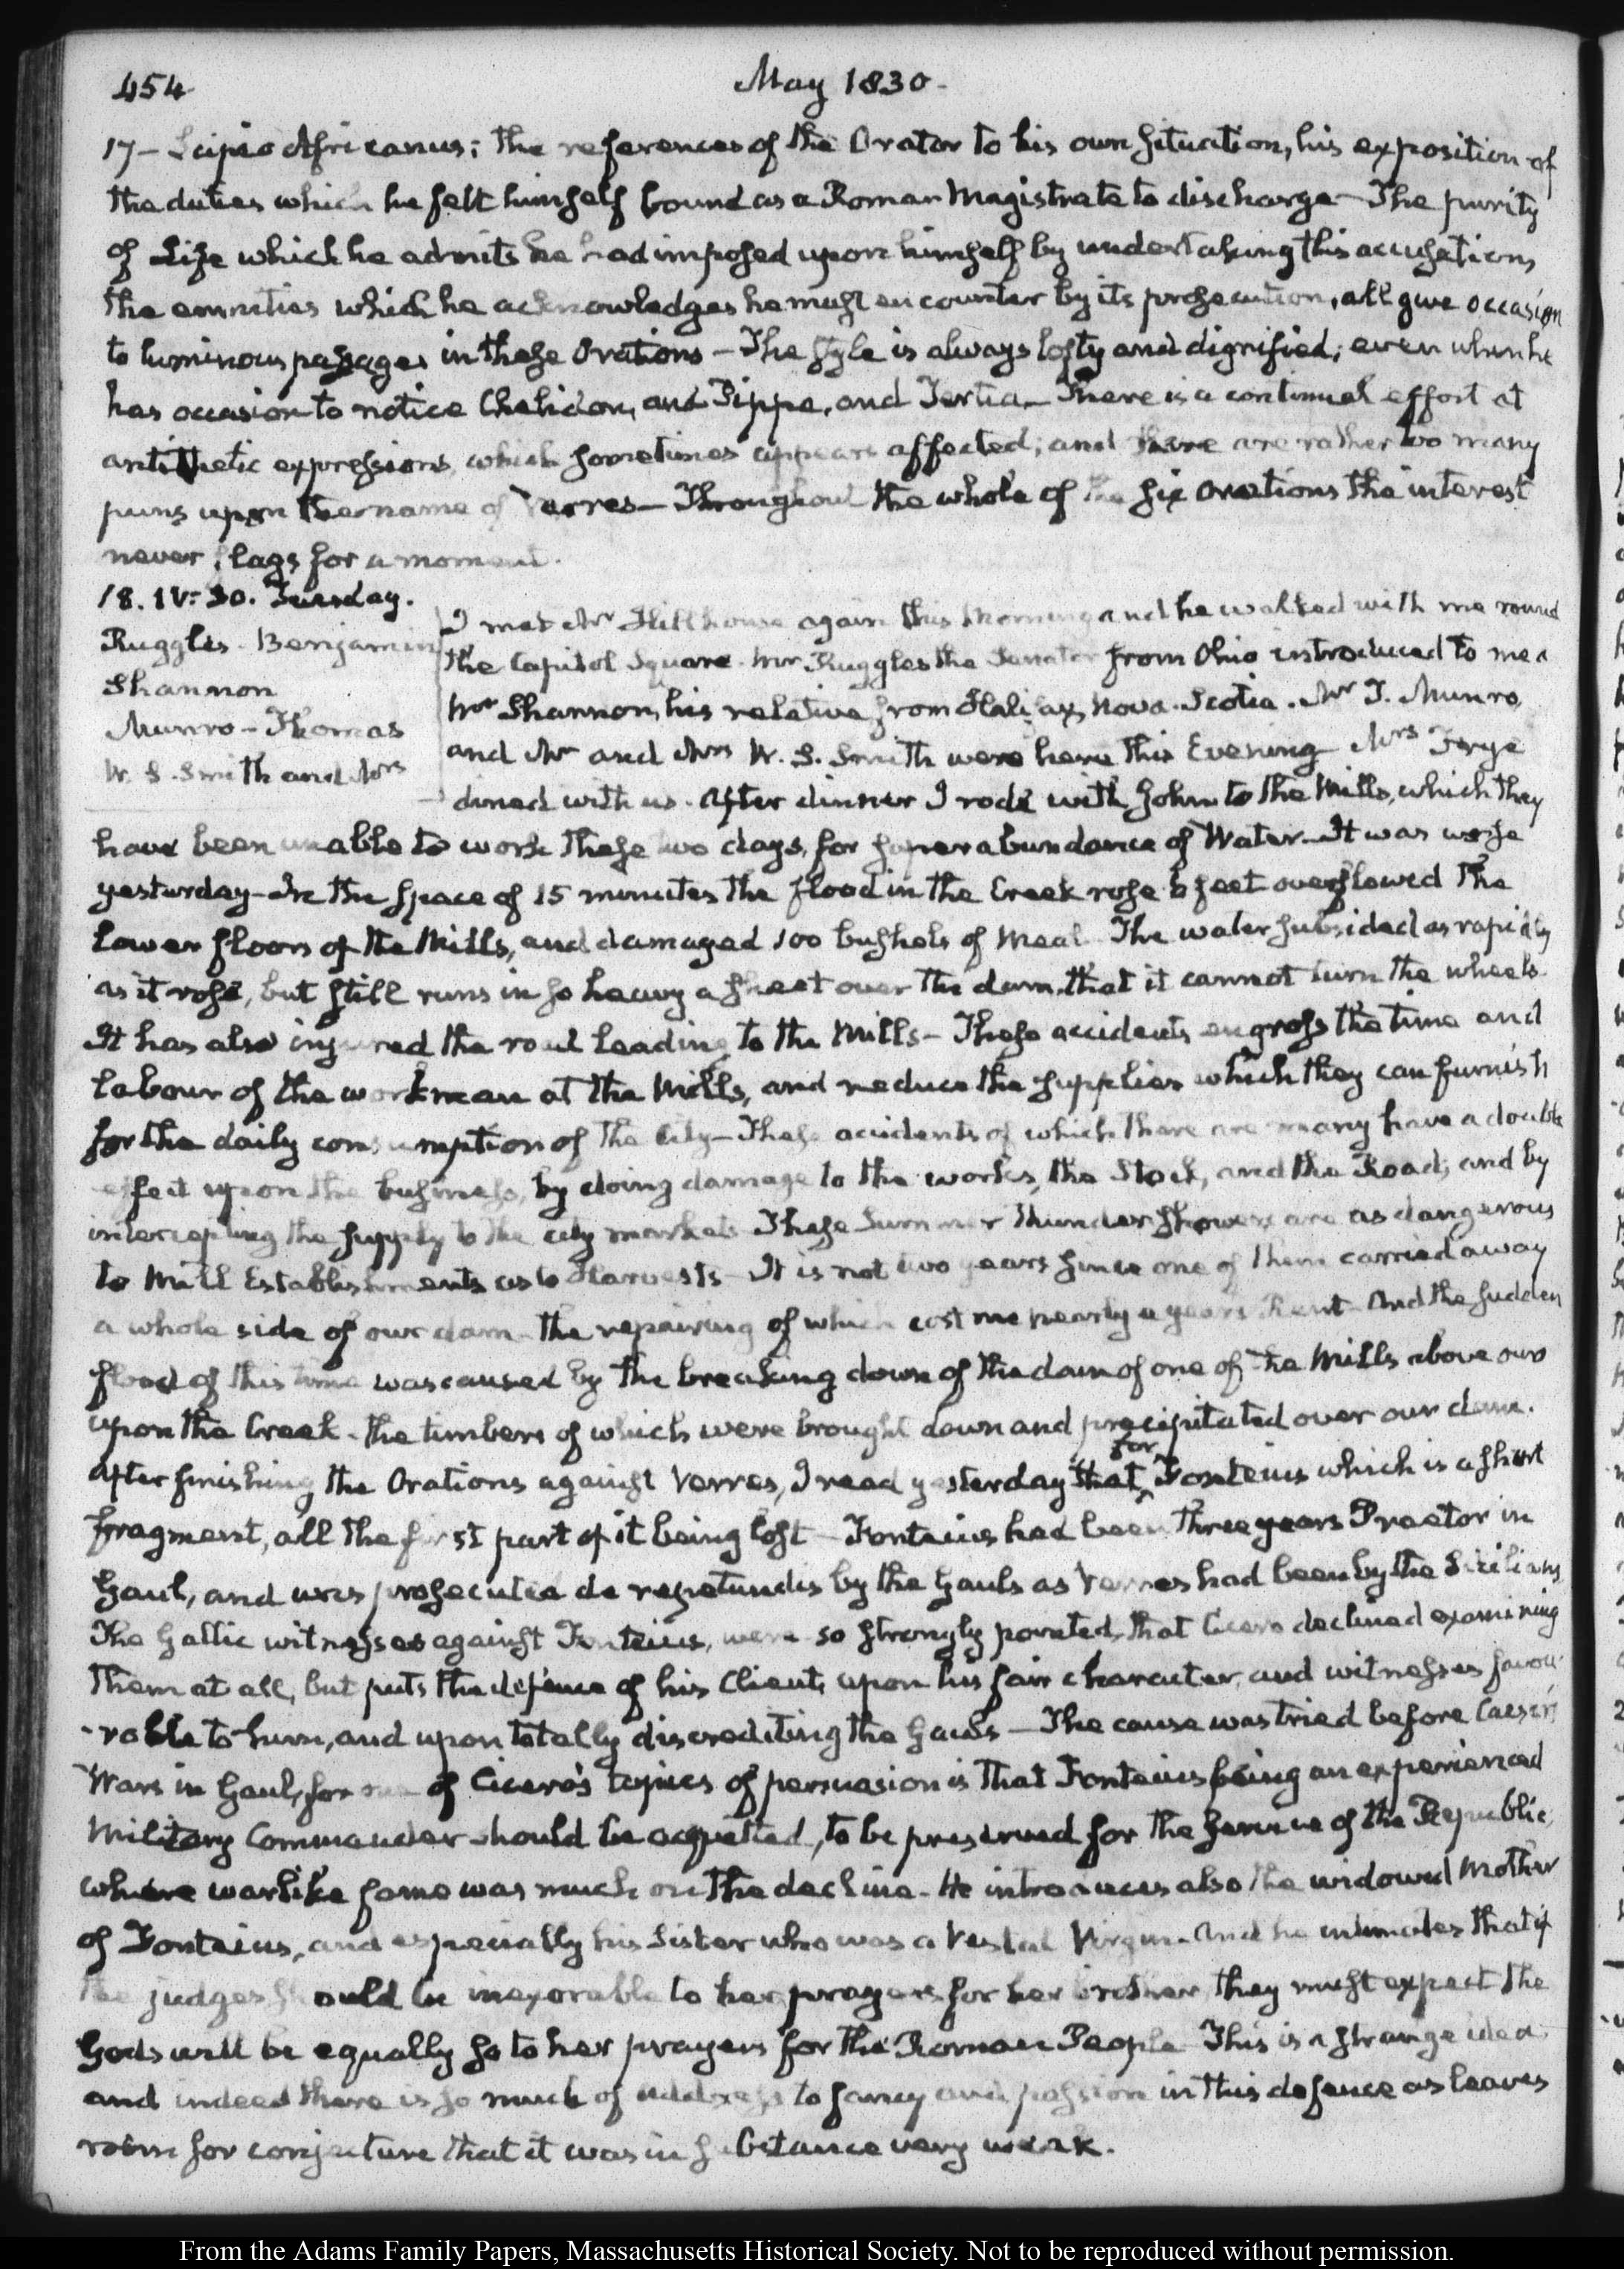 454
May 1830.
17 — Scipio Africanus; the references of the Orator to his own situation, his exposition of
the duties which he felt himself bound as a Roman Magistrate to discharge — The purity
of Life which he admits he had imposed upon himself by undertaking this accusation,
the enmities which he acknowledges he must encounter by its prosecution, all give occasion
to luminous passages in these Orations — The style is always lofty and dignified; even when he
has occasion to notice Chelidon, and Pippa, and Tertia — There is a continual effort at
antithetic expressions, which sometimes appears affected; and there are rather too many
puns upon the name of Verres — Throughout the whole of the six Orations the interest
never flags for a moment.
18. IV: 30. Tuesday.
Ruggles. Benjamin
Shannon
Munro — Thomas
W. S. Smith and Mrs
I met Mr Hillhouse again this Morning and he walked with me round
the Capitol Square. Mr Ruggles the Senator from Ohio introduced to me a
Mr Shannon, his relative from Halifax, Nova-Scotia. Mr T. Munro,
and Mr and Mrs W. S. Smith were here this Evening Mrs Frye
dined with us. After dinner I rode with John to the Mills, which they
have been unable to work these two days, for superabundance of Water. It was worse
yesterday — In the space of 15 minutes the flood in the Creek rose 6 feet overflowed the
lower floors of the Mills, and damaged 100 bushels of Meal. The water subsided as rapidly
as it rose, but still runs in so heavy a sheet over the dam, that it cannot turn the wheels.
It has also injured the road leading to the Mills — These accidents engross the time and
labour of the workmen at the Mills, and reduce the supplies which they can furnish
for the daily consumption of the City — These accidents of which there are many have a double
effect upon the business, by doing damage to the works, the Stock, and the Road; and by
intercepting the supply to the city markets These Summer thunder showers are as dangerous
to Mill Establishments as to Harvests — It is not two years since one of them carried away
a whole side of our dam — the repairing of which cost me nearly a years Rent — And the sudden
flood of this time was caused by the breaking down of the dam of one of the Mills above ours
upon the Creek — the timbers of which were brought down and precipitated over our dam.
After finishing the Orations against Verres, I read yesterday that for Fonteius which is a short
fragment, all the first part of it being lost — Fonteius had been three years Praetor in
Gaul, and was prosecuted de repetundis by the Gauls as Verres had been by the Sicilians
The Gallic witnesses against Fonteius, were so strongly pointed, that Cicero declined examining
them at all, but puts the defence of his Client, upon his fair character, and witnesses favou-
-rable to him, and upon totally discrediting the Gauls — The cause was tried before Caesar's
Wars in Gaul, for one of Cicero's topics of persuasion is that Fonteius being an experienced
Military Commander should be acquitted, to be preserved for the service of the Republic,
where warlike fame was much on the decline — He introduces also the widowed Mother
of Fonteius, and especially his Sister who was a Vestal Virgin — And he intimates that if
the judges should be inexorable to her prayers for her brother, they must expect the
Gods will be equally so to her prayers for the Roman People This is a strange idea
and indeed there is so much of address to fancy and passion in this defence as leaves
room for conjecture that it was in substance very weak.
From the Adams Family Papers, Massachusetts Historical Society. Not to be reproduced without permission.